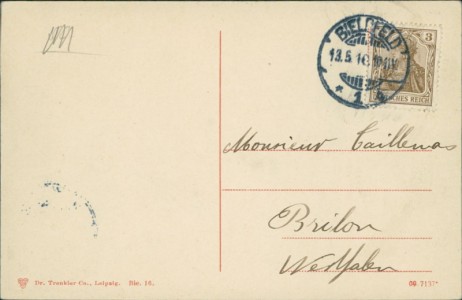 BIELEFELD
13.5.10
* 1 b
3
DEUTSCHES REICH
Monsieur Caillenas
Brilon
Westfalen
Dr. Trenkler Co., Leipzig. Bie. 16.
09. 7137*